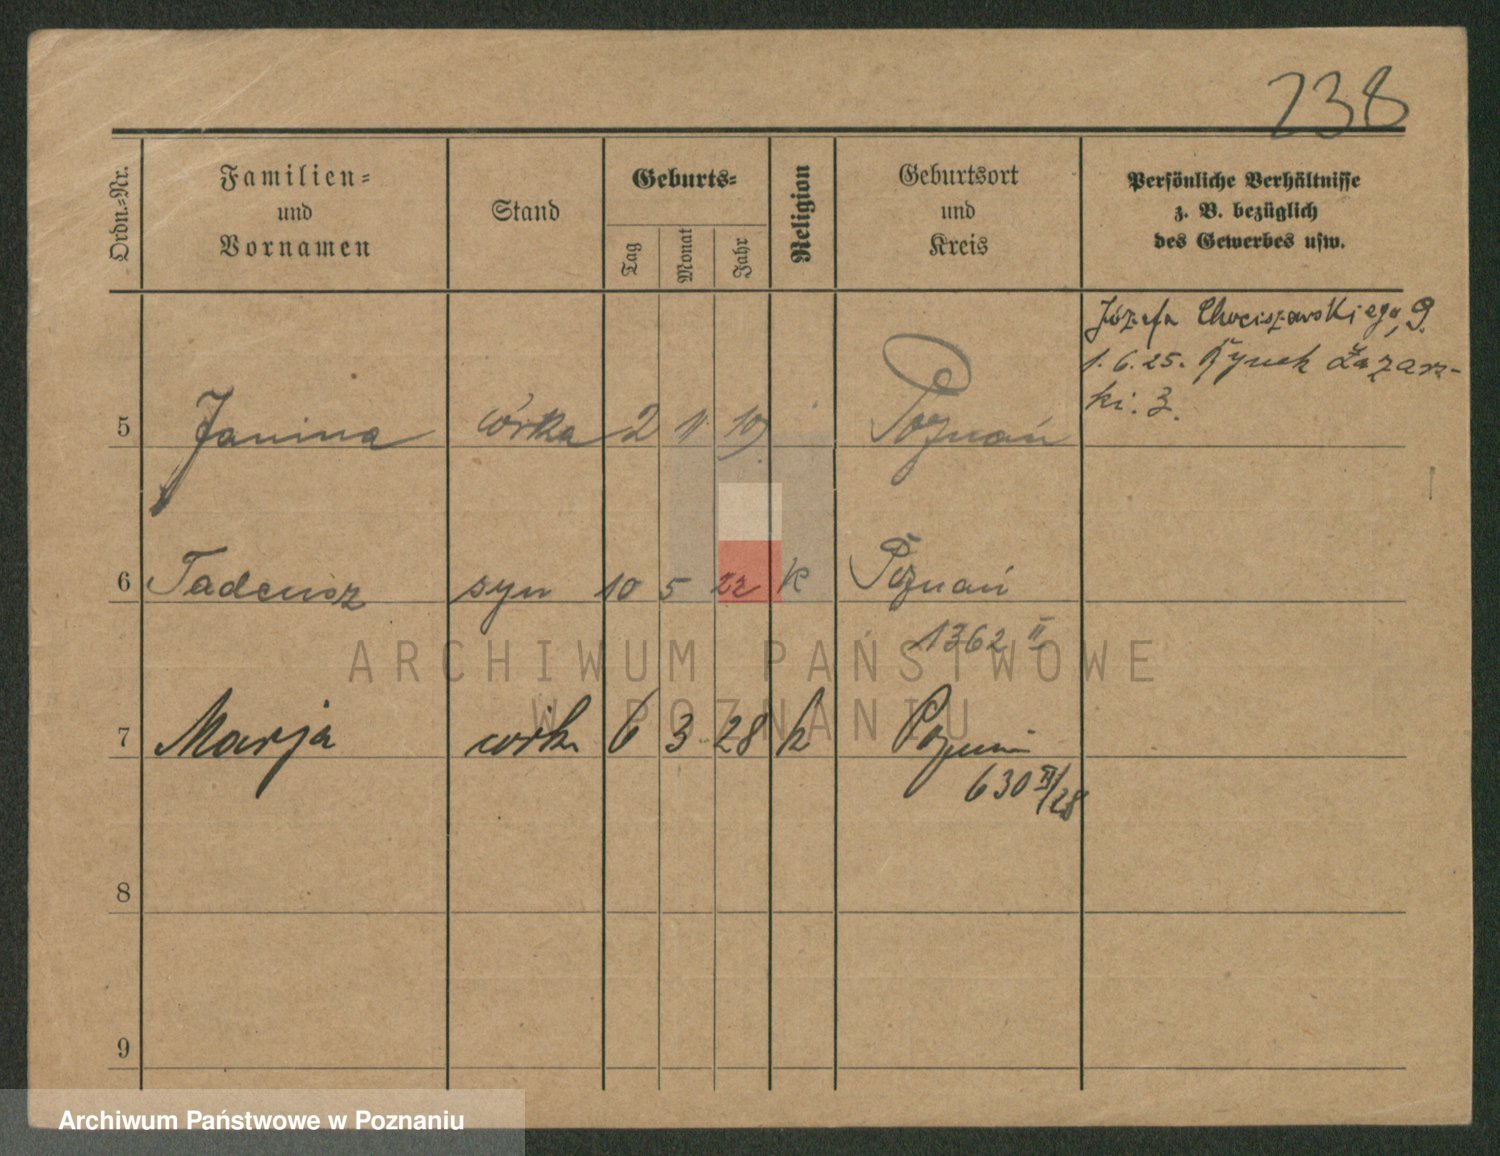 238
Ordn.-Nr.
Familien-
und
Vornamen
Stand
Geburts-
Tag
Monat
Jahr
Religion
Geburtsort
und
Kreis
Persönliche Verhältnisse
z. B. bezüglich
des Gewerbes usw.
Józefa Chociszewskiego, 9.
1.6.25. Rynek Łazars-
ki. 3.
5 Janina córka 2 11 19 Poznań
6 Tadeusz syn 10 5 22 k Poznań
1362 II
7 Marja córk 6 3 28 k Poznań
630 II/28
8
9
ARCHIWUM PAŃSTWOWE
W POZNANIU
Archiwum Państwowe w Poznaniu